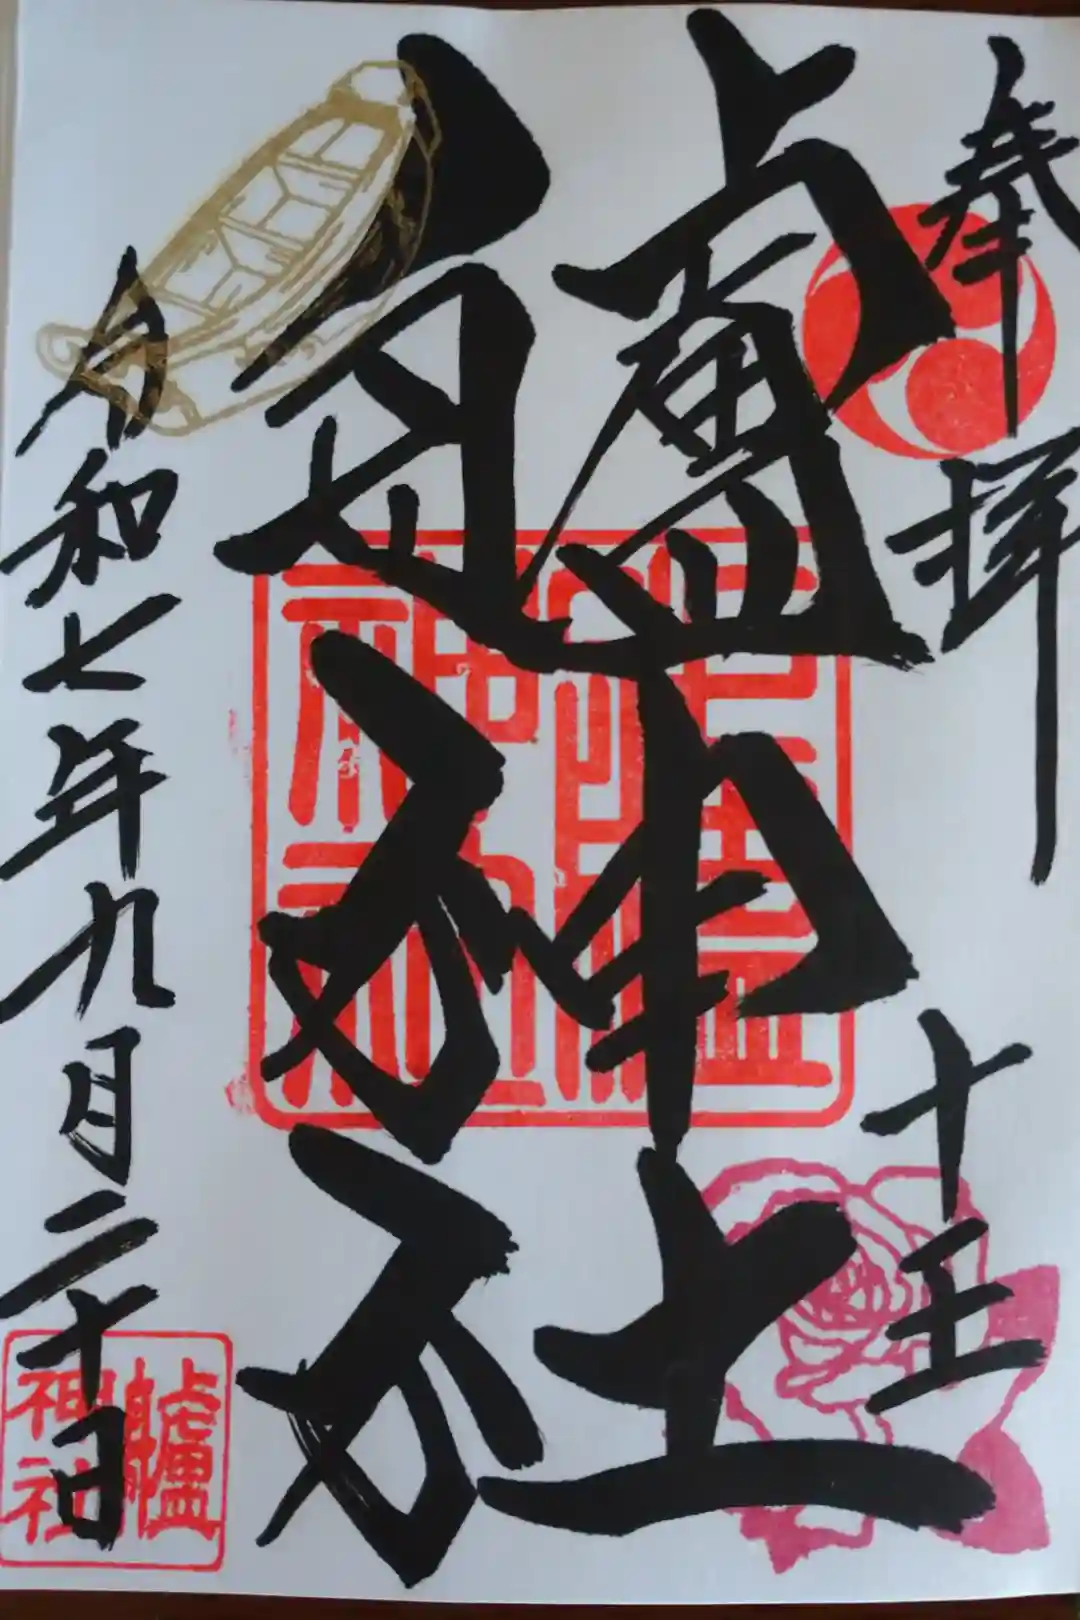 奉拝
十王
艫神社
令和七年九月二十日
艫神社
艫神社